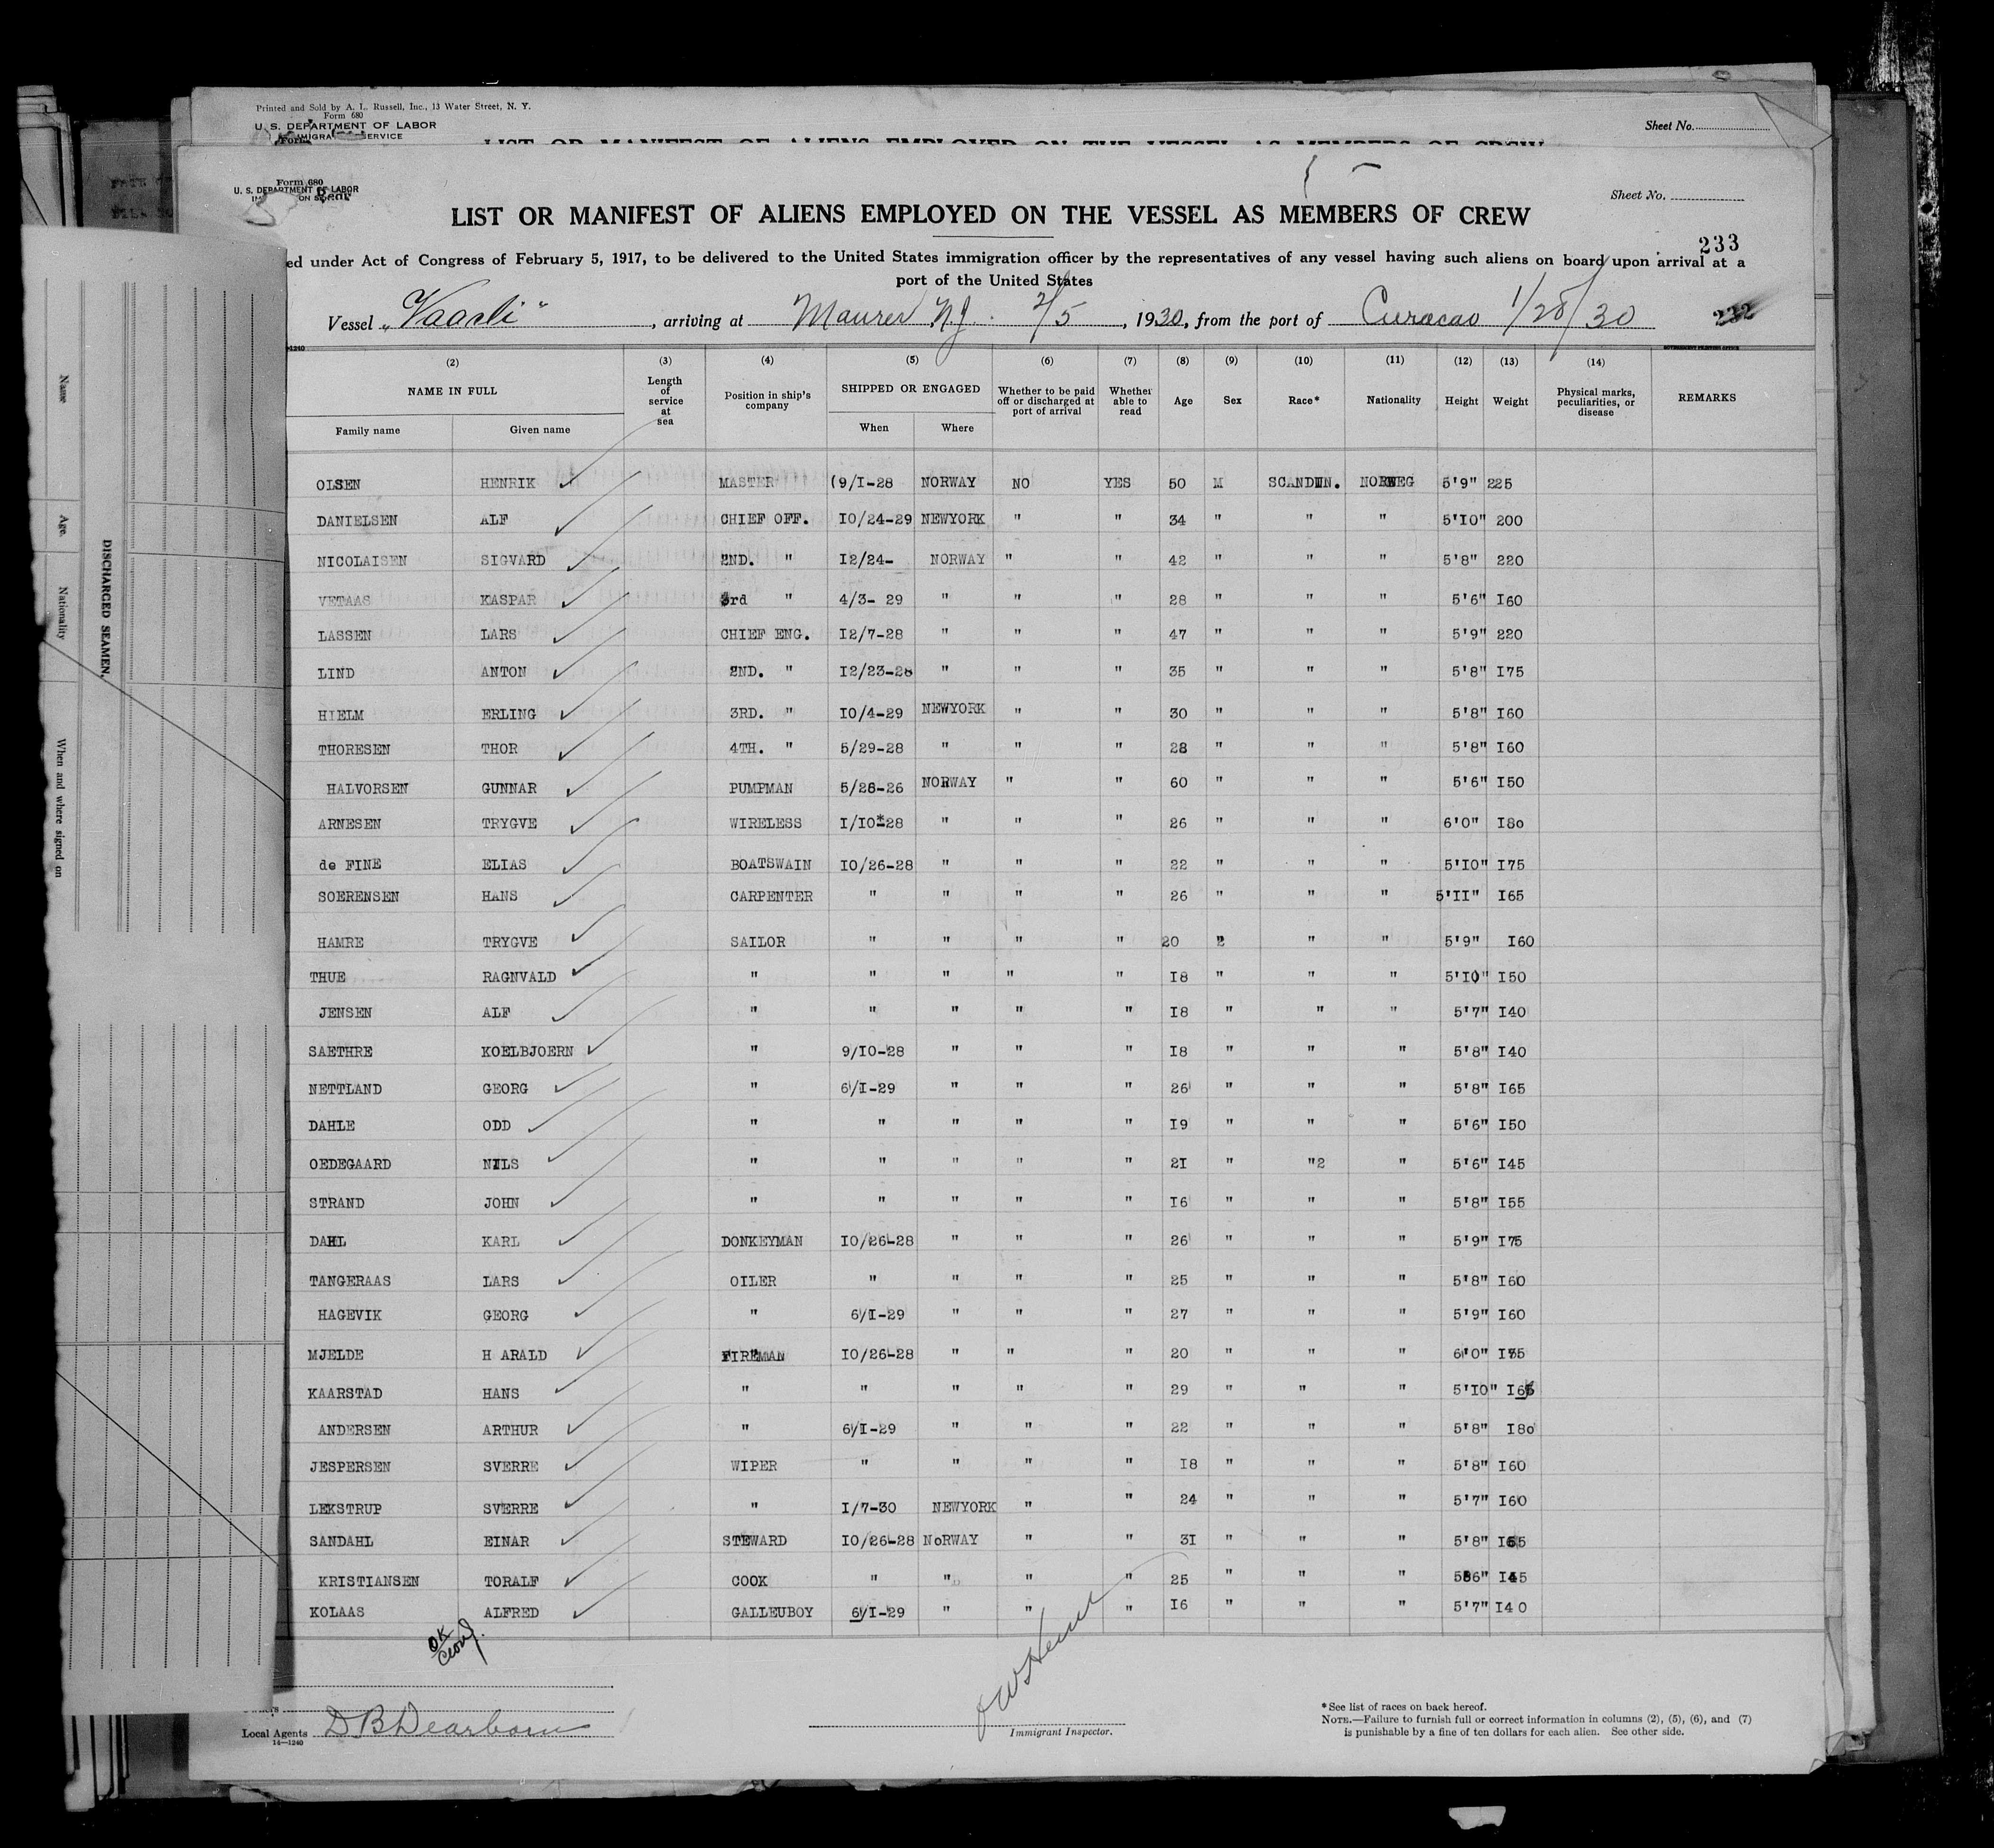 Printed and Sold by A. L. Russell, Inc., 13 Water Street, N. Y.
Form 680
U. S. DEPARTMENT OF LABOR
SERVICE
Sheet No.
LIST OR MANIFEST OF ALIENS EMPLOYED ON THE VESSEL AS MEMBERS OF CREW
Form 680
U. S. DEPARTMENT OF LABOR
Sheet No.
LIST OR MANIFEST OF ALIENS EMPLOYED ON THE VESSEL AS MEMBERS OF CREW
233
ed under Act of Congress of February 5, 1917, to be delivered to the United States immigration officer by the representatives of any vessel having such aliens on board upon arrival at a
port of the United States
Vessel „Vaarli“, arriving at Maurer N.J. 2/5, 1930, from the port of Curacao 1/28/30 232
(2) (3) (4) (5) (6) (7) (8) (9) (10) (11) (12) (13) (14)
NAME IN FULL Length of service at sea Position in ship's company SHIPPED OR ENGAGED Whether to be paid off or discharged at port of arrival Whether able to read Age Sex Race* Nationality Height Weight Physical marks, peculiarities, or disease REMARKS
Family name Given name When Where
OLSEN HENRIK MASTER (9/I-28 NORWAY NO YES 50 M SCANDIN. NORWEG 5'9" 225
DANIELSEN ALF CHIEF OFF. IO/24-29 NEWYORK " " 34 " " " 5'IO" 200
NICOLAISEN SIGVARD 2ND. " I2/24- NORWAY " " 42 " " " 5'8" 220
VETAAS KASPAR 3rd " 4/3- 29 " " " 28 " " " 5'6" I60
LASSEN LARS CHIEF ENG. I2/7-28 " " " 47 " " " 5'9" 220
LIND ANTON 2ND. " I2/23-28 " " " 35 " " " 5'8" I75
HIELM ERLING 3RD. " IO/4-29 NEWYORK " " 30 " " " 5'8" I60
THORESEN THOR 4TH. " 5/29-28 " " " 28 " " " 5'8" I60
HALVORSEN GUNNAR PUMPMAN 5/28-26 NORWAY " " 60 " " " 5'6" I50
ARNESEN TRYGVE WIRELESS I/IO*28 " " " 26 " " " 6'0" I8o
de FINE ELIAS BOATSWAIN IO/26-28 " " " 22 " " " 5'IO" I75
SOERENSEN HANS CARPENTER " " " " 26 " " " 5'II" I65
HAMRE TRYGVE SAILOR " " " " 20 " " " 5'9" I60
THUE RAGNVALD " " " " " I8 " " " 5'IO" I50
JENSEN ALF " " " " " I8 " " " 5'7" I40
SAETHRE KOELBJOERN " 9/IO-28 " " " I8 " " " 5'8" I40
NETTLAND GEORG " 6/I-29 " " " 26 " " " 5'8" I65
DAHLE ODD " " " " " I9 " " " 5'6" I50
OEDEGAARD NILS " " " " " 2I " "2 " 5'6" I45
STRAND JOHN " " " " " I6 " " " 5'8" I55
DAHL KARL DONKEYMAN IO/26-28 " " " 26 " " " 5'9" I75
TANGERAAS LARS OILER " " " " 25 " " " 5'8" I60
HAGEVIK GEORG " 6/I-29 " " " 27 " " " 5'9" I60
MJELDE H ARALD FIREMAN IO/26-28 " " " 20 " " " 6'0" I75
KAARSTAD HANS " " " " " 29 " " " 5'IO" I65
ANDERSEN ARTHUR " 6/I-29 " " " 22 " " " 5'8" I8o
JESPERSEN SVERRE WIPER " " " " I8 " " " 5'8" I60
LEKSTRUP SVERRE " I/7-30 NEWYORK " " 24 " " " 5'7" I60
SANDAHL EINAR STEWARD IO/26-28 NoRWAY " " 3I " " " 5'8" I65
KRISTIANSEN TORALF COOK " " " " 25 " " " 586" I45
KOLAAS ALFRED GALLEUBOY 6/I-29 " " " I6 " " " 5'7" I40
OK
Local Agents D B Dearborn
14—1240
Immigrant Inspector.
*See list of races on back hereof.
NOTE.—Failure to furnish full or correct information in columns (2), (5), (6), and (7)
is punishable by a fine of ten dollars for each alien. See other side.
Name
Age.
Nationality
When and where signed on
DISCHARGED SEAMEN,